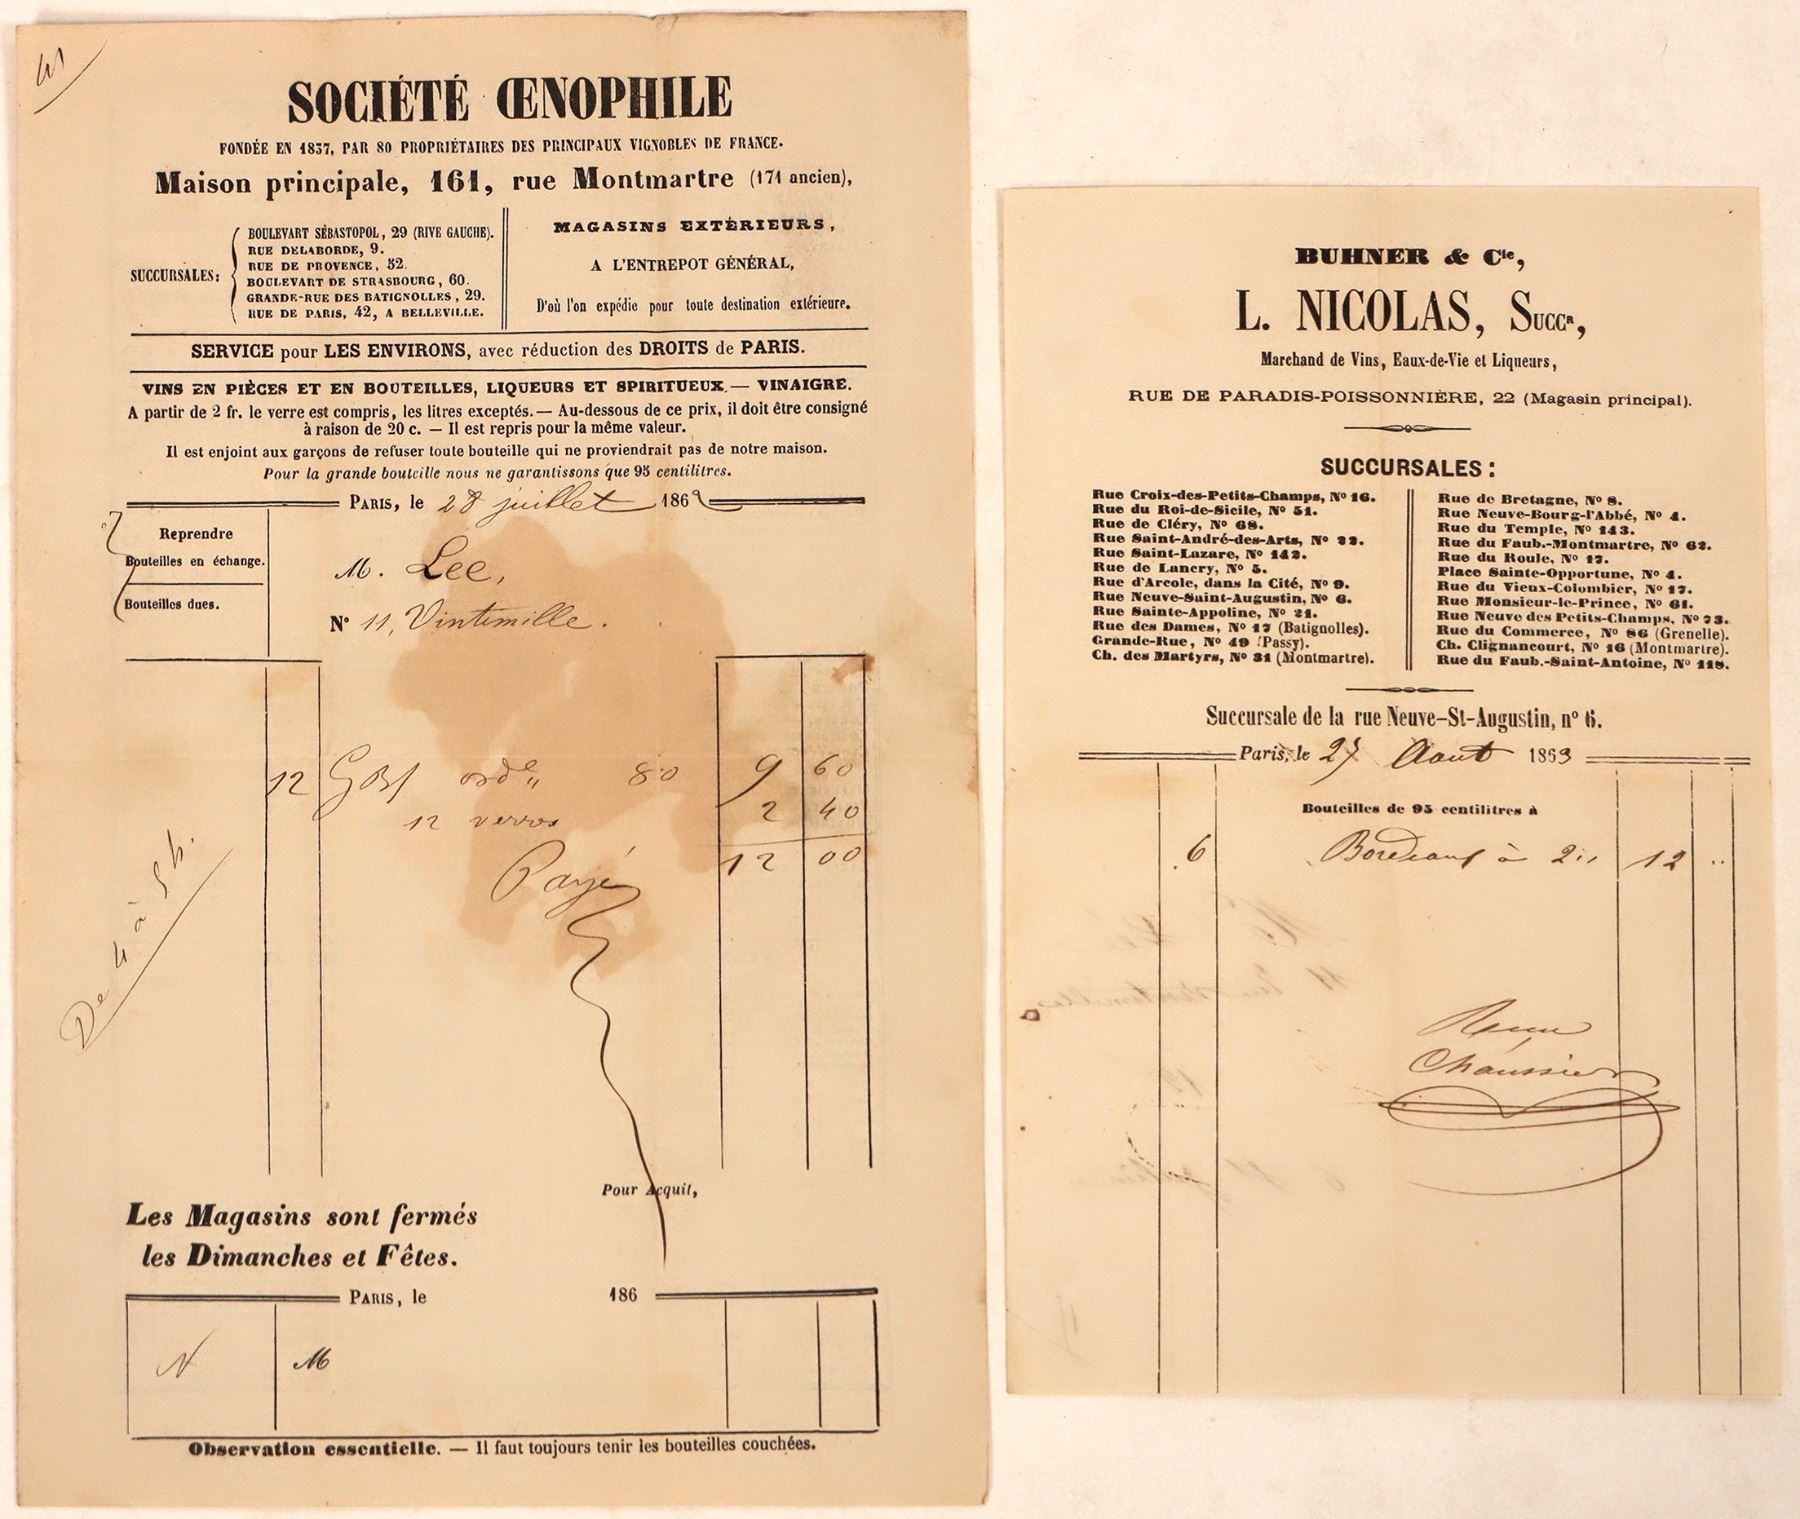 41
SOCIÉTÉ ŒNOPHILE
FONDÉE EN 1837, PAR 80 PROPRIÉTAIRES DES PRINCIPAUX VIGNOBLES DE FRANCE.
Maison principale, 161, rue Montmartre (171 ancien),
SUCCURSALES:
BOULEVART SÉBASTOPOL, 29 (RIVE GAUCHE).
RUE DELABORDE, 9.
RUE DE PROVENCE, 52.
BOULEVART DE STRASBOURG, 60.
GRANDE-RUE DES BATIGNOLLES, 29.
RUE DE PARIS, 42, A BELLEVILLE.
MAGASINS EXTÉRIEURS,
A L'ENTREPOT GÉNÉRAL,
D'où l'on expédie pour toute destination extérieure.
SERVICE pour LES ENVIRONS, avec réduction des DROITS de PARIS.
VINS EN PIÈCES ET EN BOUTEILLES, LIQUEURS ET SPIRITUEUX. — VINAIGRE.
A partir de 2 fr. le verre est compris, les litres exceptés. — Au-dessous de ce prix, il doit être consigné
à raison de 20 c. — Il est repris pour la même valeur.
Il est enjoint aux garçons de refuser toute bouteille qui ne proviendrait pas de notre maison.
Pour la grande bouteille nous ne garantissons que 95 centilitres.
PARIS, le 28 juillet 186
Reprendre
Bouteilles en échange.
Bouteilles dues.
M. Lee,
N° 11, Vintimille.
12 GBx ord 80 9 60
12 verres 2 40
12 00
Payé
De 4 à 5 h.
Pour Acquit,
Les Magasins sont fermés
les Dimanches et Fêtes.
PARIS, le 186
N M
Observation essentielle. — Il faut toujours tenir les bouteilles couchées.
BUHNER & Cie,
L. NICOLAS, SUCCR,
Marchand de Vins, Eaux-de-Vie et Liqueurs,
RUE DE PARADIS-POISSONNIÈRE, 22 (Magasin principal).
SUCCURSALES:
Rue Croix-des-Petits-Champs, N° 16.
Rue du Roi-de-Sicile, N° 51.
Rue de Cléry, N° 68.
Rue Saint-André-des-Arts, N° 22.
Rue Saint-Lazare, N° 142.
Rue de Lancry, N° 5.
Rue d'Arcole, dans la Cité, N° 9.
Rue Neuve-Saint-Augustin, N° 6.
Rue Sainte-Appoline, N° 21.
Rue des Dames, N° 17 (Batignolles).
Grande-Rue, N° 49 (Passy).
Ch. des Martyrs, N° 31 (Montmartre).
Rue de Bretagne, N° 8.
Rue Neuve-Bourg-l'Abbé, N° 4.
Rue du Temple, N° 143.
Rue du Faub.-Montmartre, N° 62.
Rue du Roule, N° 17.
Place Sainte-Opportune, N° 4.
Rue du Vieux-Colombier, N° 17.
Rue Monsieur-le-Prince, N° 61.
Rue Neuve des Petits-Champs, N° 73.
Rue du Commerce, N° 86 (Grenelle).
Ch. Clignancourt, N° 16 (Montmartre).
Rue du Faub.-Saint-Antoine, N° 118.
Succursale de la rue Neuve-St-Augustin, n° 6.
Paris, le Aout 1863
Bouteilles de 95 centilitres à
6 Bordeaux à 2 12
Chaussier